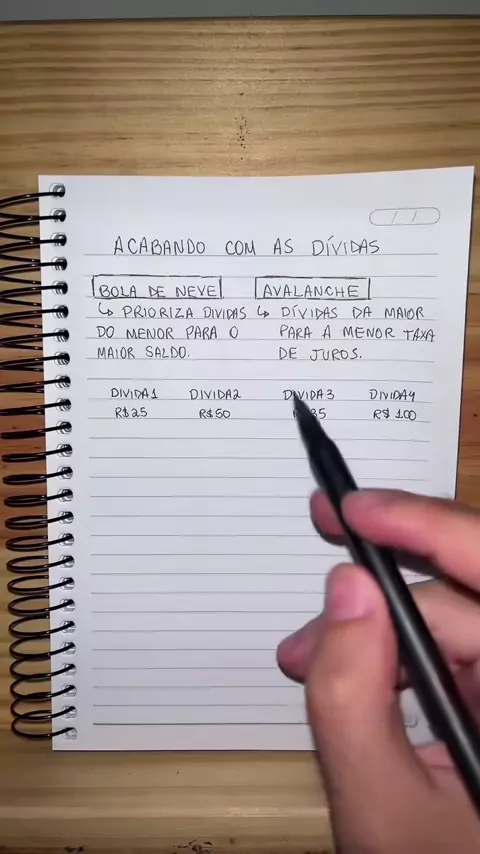 ACABANDO COM AS DÍVIDAS
BOLA DE NEVE
↳ PRIORIZA DIVIDAS
DO MENOR PARA O
MAIOR SALDO.
AVALANCHE
↳ DÍVIDAS DA MAIOR
PARA A MENOR TAXA
DE JUROS.
DIVIDA1 DIVIDA2 DIVIDA3 DIVIDA4
R$25 R$50 R$ 100